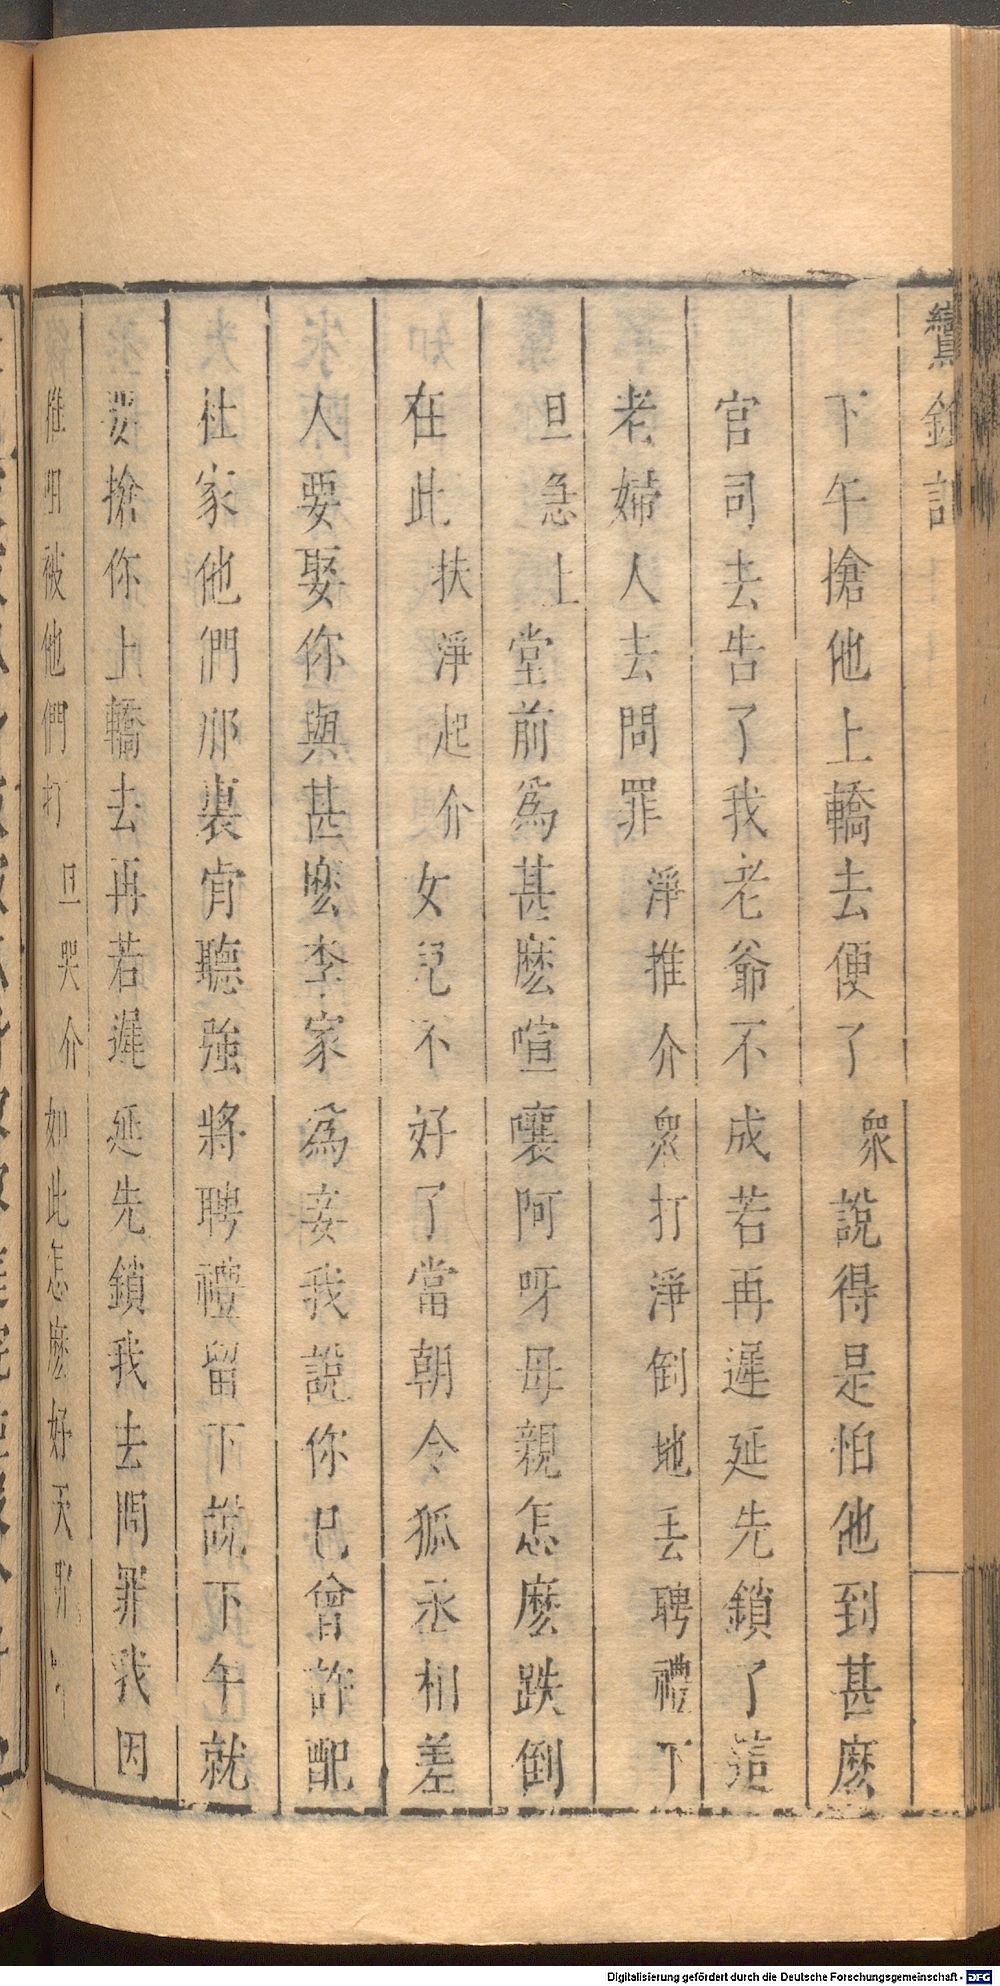 鸞鎞記
下午搶他上轎去便了衆說得是怕他到甚麽
官司去告了我老爺不成若再遲延先鎖了這
老婦人去問罪淨推介衆打淨倒地丢聘禮下
旦急上堂前爲甚麽喧嚷阿呀母親怎麽跌倒
在此扶淨起介女兒不好了當朝令狐丞相差
人要娶你與甚麽李家爲妾我說你已曾許配
杜家他們那裏肯聽強將聘禮留下說下午就
要搶你上轎去再若遲延先鎖我去問罪我因
推阻被他們打旦哭介如此怎麽好天那
Digitalisierung gefördert durch die Deutsche Forschungsgemeinschaft - DFG